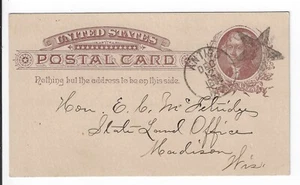 UNITED STATES
POSTAL CARD
Nothing but the address to be on this side.
Hon. E. C. McFetridge
State Land Office
Madison
Wis